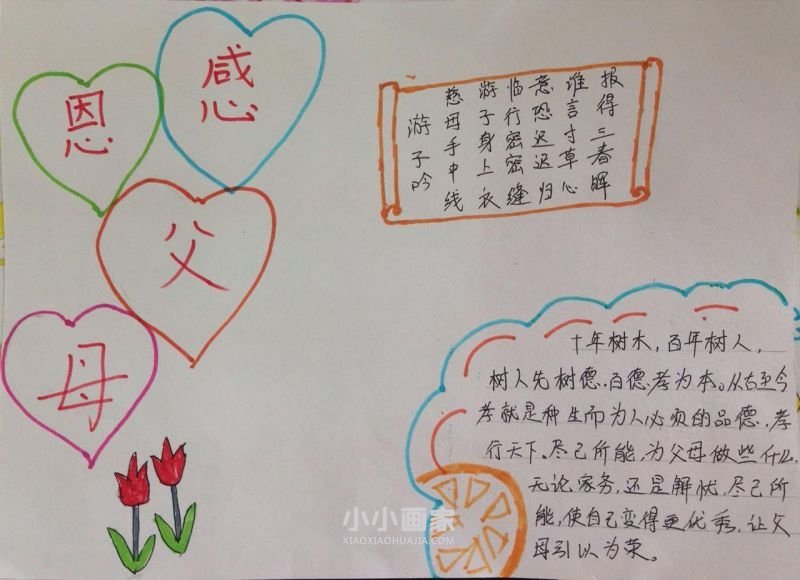 感
恩
父
母
游子吟
慈母手中线
游子身上衣
临行密密缝
意恐迟迟归
谁言寸草心
报得三春晖
十年树木，百年树人，
树人先树德.百德.孝为本。从古至今
孝就是种生而为人必须的品德.孝
行天下.尽己所能,为父母做些什么,
无论家务,还是解忧,尽己所
能,使自己变得更优秀,让父
母引以为荣。
小小画家
XIAOXIAOHUAJIA.COM